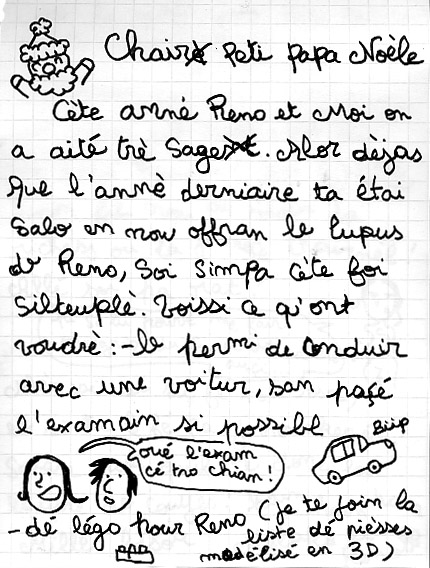 Chair Peti papa Noèle
Cète anné Reno et Moi on
a aité trè Sage. Alor dèjas
que l'annè derniaire ta étai
Salo en nou offran le lupus
d Reno, Soi Simpa cète foi
Silteuplè. Voissi ce qu'ont
voudrè : - le permi de Conduir
avec une voitur, san paçé
l'examain si possible
Biip
oué l'exam
cé tro chian !
- dé légo pour Reno (je te join la
liste dé pièsses
modélisé en 3D)